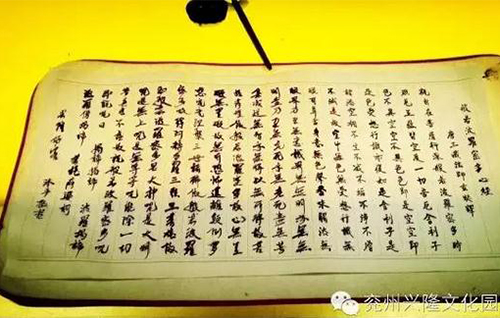 般若波羅蜜多心經
唐三藏法師玄奘譯
觀自在菩薩行深般若波羅蜜多時
照見五蘊皆空度一切苦厄舍利子
色不異空空不異色色即是空空即
是色受想行識亦復如是舍利子是
諸法空相不生不滅不垢不淨不增
不減是故空中無色無受想行識無
眼耳鼻舌身意無色聲香味觸法無
眼界乃至無意識界無無明亦無無
明盡乃至無老死亦無老死盡無苦
集滅道無智亦無得以無所得故菩
提薩埵依般若波羅蜜多故心無罣
礙無罣礙故無有恐怖遠離顛倒夢
想究竟涅槃三世諸佛依般若波羅
蜜多故得阿耨多羅三藐三菩提故
知般若波羅蜜多是大神咒是大明
咒是無上咒是無等等咒能除一切
苦真實不虛故說般若波羅蜜多咒
即說咒曰 揭諦揭諦 波羅揭諦
波羅僧揭諦 菩提薩婆訶
兖州兴隆文化园